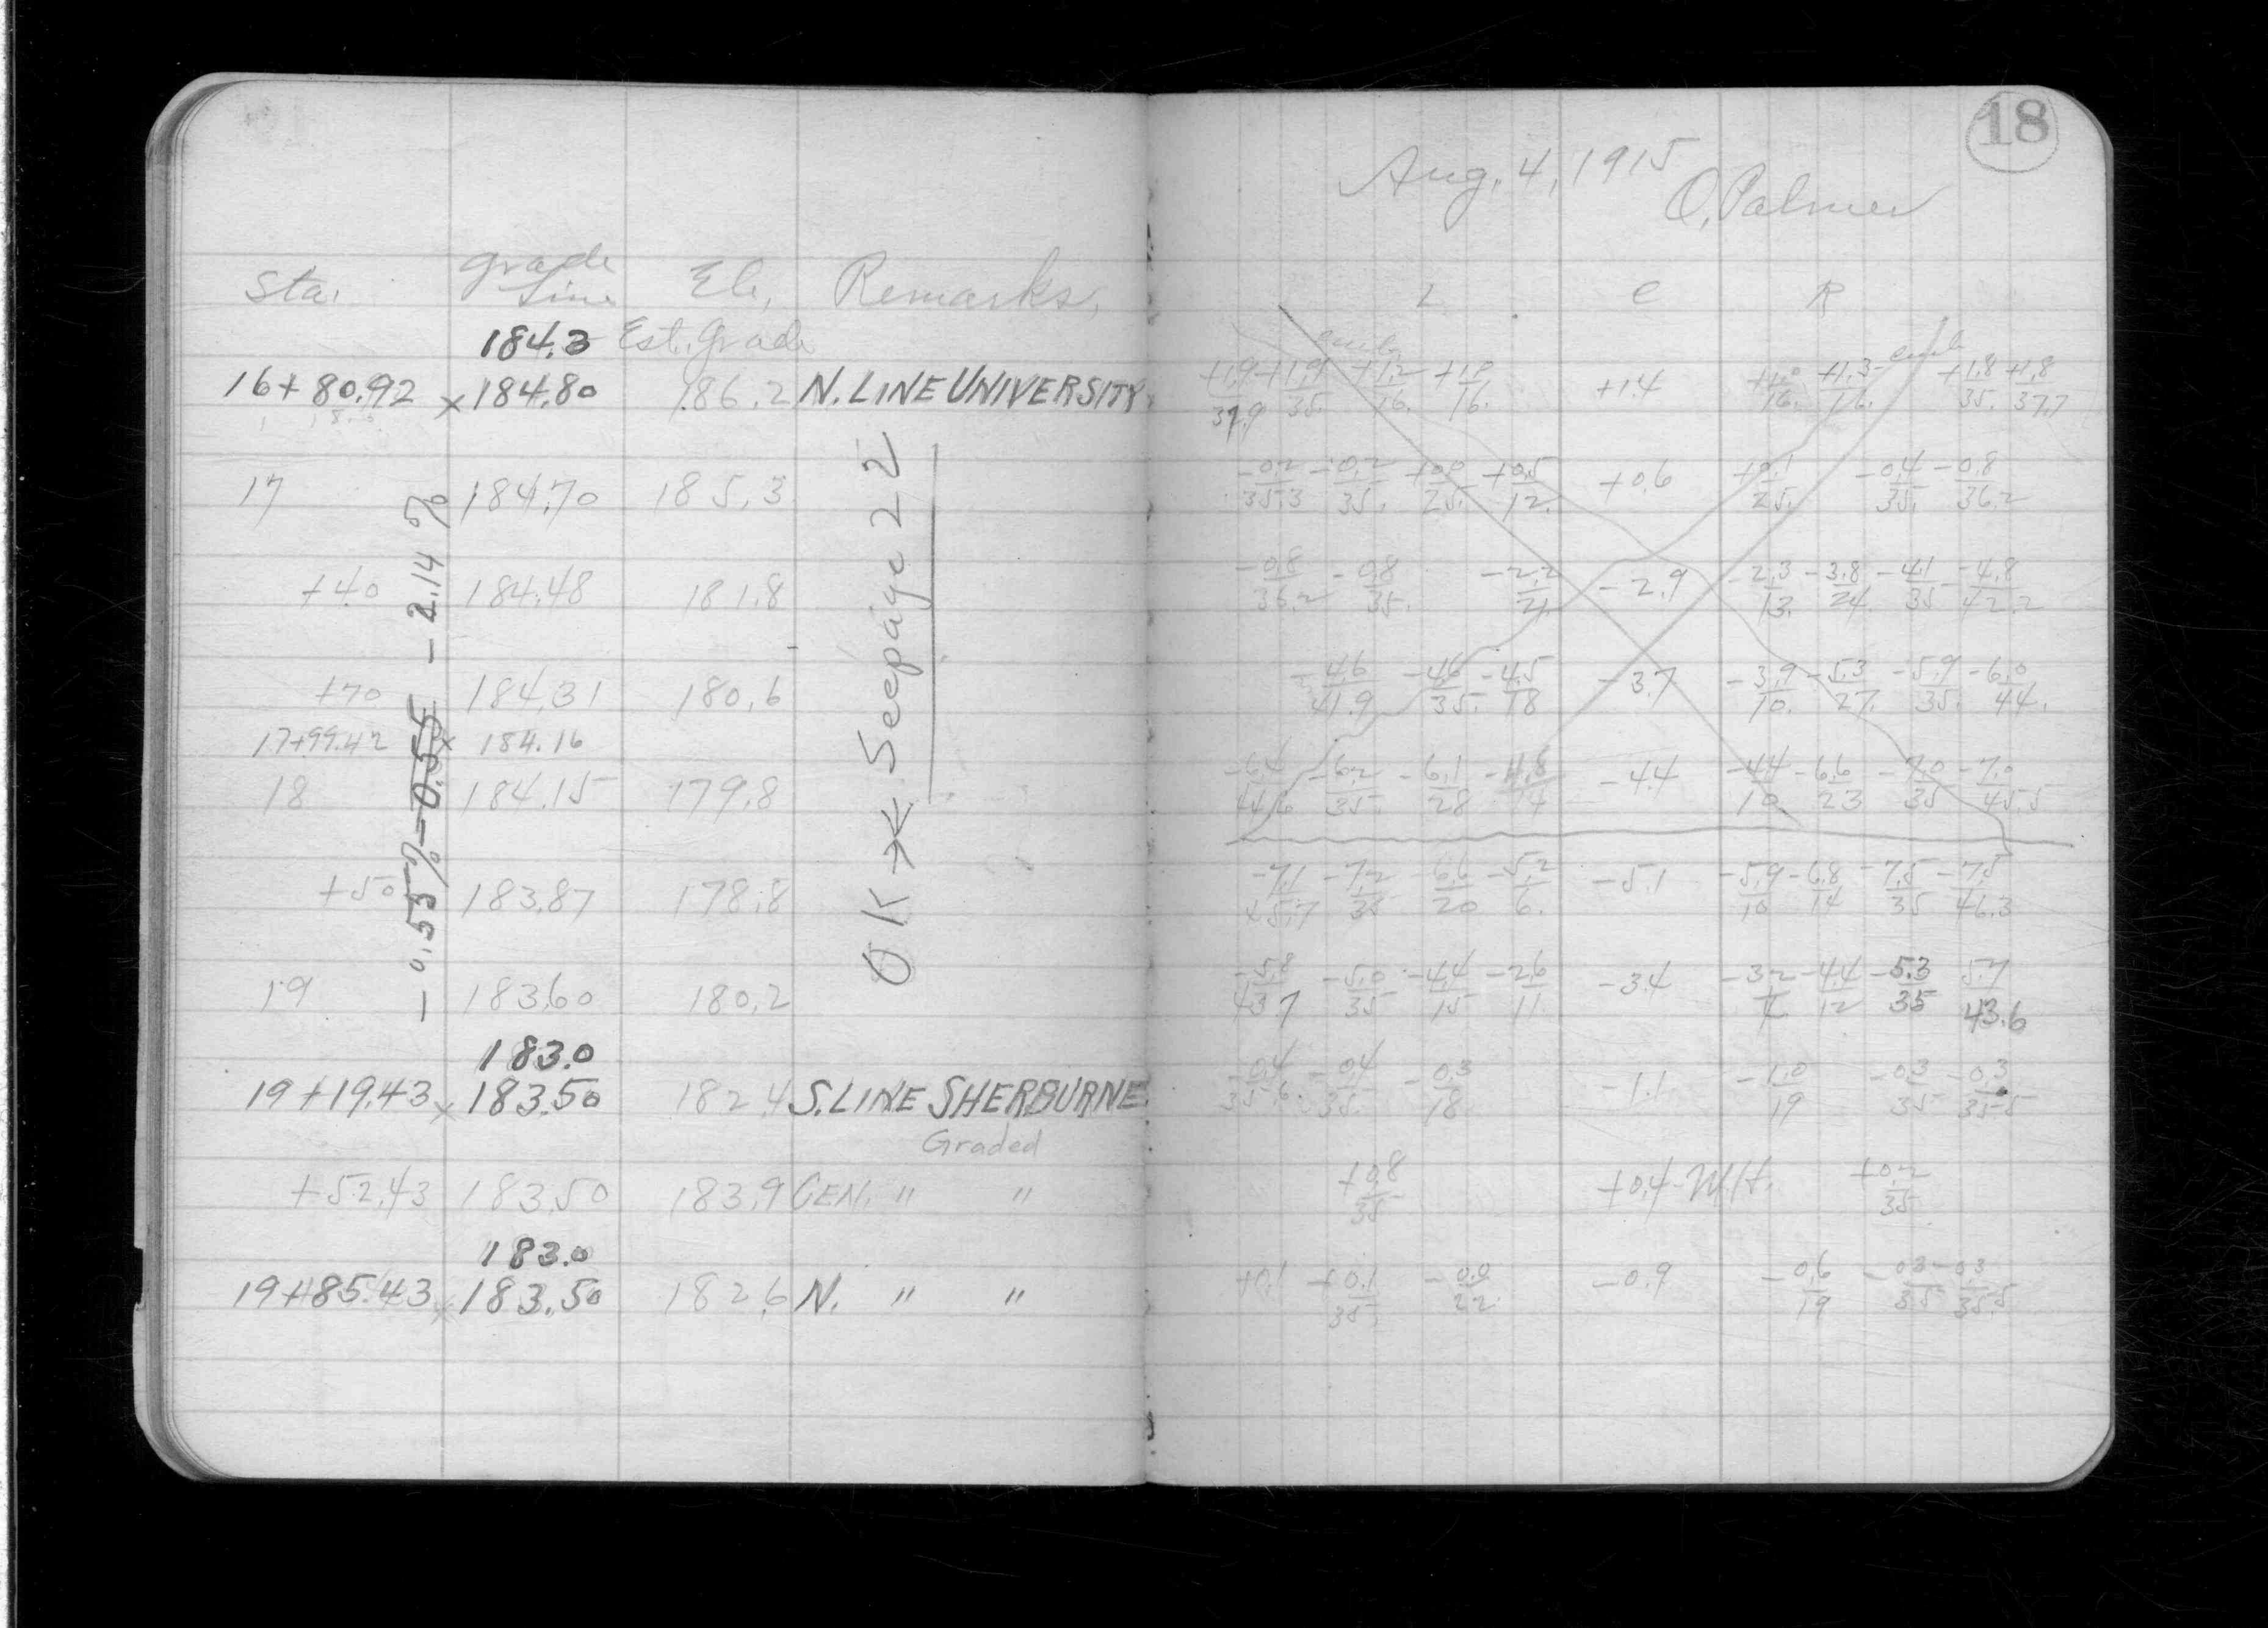 18
Aug. 4, 1915
O. Palmer
Sta. grade line Ele. Remarks.
L C R
184.3 Est. Grade
16+80.92 x 184.80 186.2 N. LINE UNIVERSITY
+1.9 +1.9 +1.2 +1.0 +1.4 +1.0 +1.3 +1.8 +1.8
37.9 35. 16. 16. 16. 16. 35. 37.7
17 184.70 185.3
-0.2 -0.2 +0.0 +0.5 +0.6 +0.1 -0.4 -0.8
35.3 35. 25. 12. 25. 35. 36.2
+40 184.48 181.8
-0.8 -0.8 -2.2 -2.9 -2.3 -3.8 -4.1 -4.8
36.2 35. 21. 13. 24. 35 42.2
+70 184.31 180.6
-4.6 -4.6 -4.5 -3.7 -3.9 -5.3 -5.9 -6.0
41.9 35. 18 10. 27. 35. 44.
17+99.42 x 184.16
18 184.15 179.8
-6.4 -6.2 -6.1 -4.8 -4.4 -4.4 -6.6 -7.0 -7.0
44.6 35. 28 14 10 23 35 45.5
+50 183.87 178.8
-7.1 -7.2 -6.6 -5.2 -5.1 -5.9 -6.8 -7.5 -7.5
45.7 35 20 6. 10 14 35 46.3
19 183.60 180.2
-5.8 -5.0 -4.4 -2.6 -3.4 -3.2 -4.4 -5.3 5.7
43.7 35 15 11. 12 35 43.6
183.0
19+19.43 x 183.50 182.4 S. LINE SHERBURNE
-0.4 -0.4 -0.3 -1.1 -1.0 -0.3 -0.3
35.6. 35. 18 19 35 35.5
Graded
+52.43 183.50 183.9 CEN. " "
+0.8 +0.4 - W.H. +0.2
35 35
183.0
19+85.43 x 183.50 182.6 N. " "
+0.1 +0.1 -0.0 -0.9 -0.6 -0.3 -0.3
35. 22. 19 35 35.5
-0.55% -0.555 -2.14%
OK * See page 22